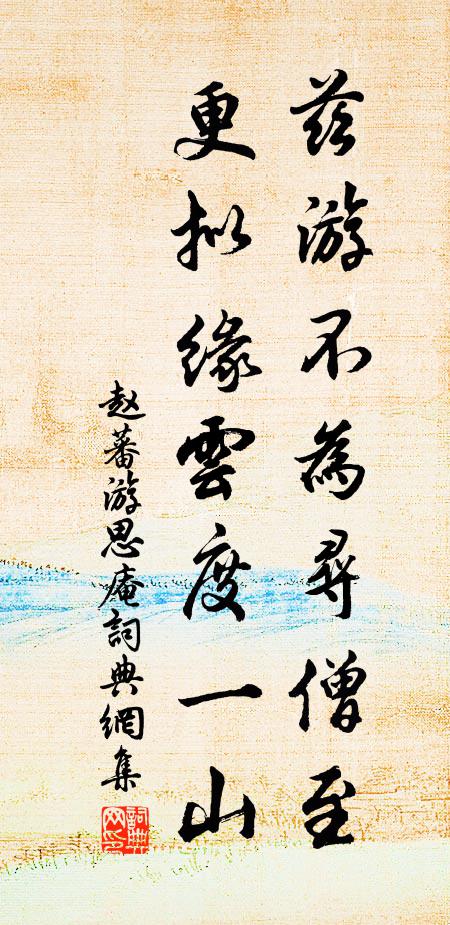 茲游不為尋僧至
更拟緣雲度一山
赵蕃游思庵詞典網集
詞典网印